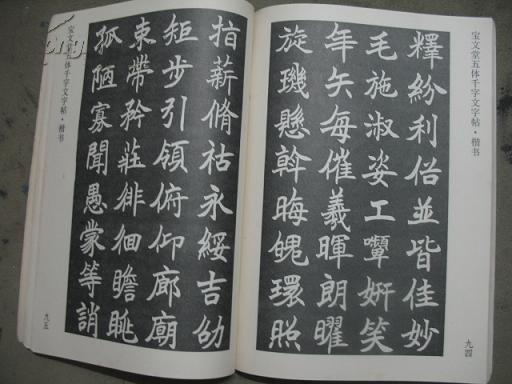 宝文堂五体千字文字帖·楷书
釋紛利俗並皆佳妙
毛施淑姿工顰妍笑
年矢每催羲暉朗曜
旋璣懸斡晦魄環照
九四
指薪脩祜永綏吉劭
矩步引領俯仰廊廟
束帶矜莊徘徊瞻眺
孤陋寡聞愚蒙等誚
宝文堂五体千字文字帖·楷书
九五